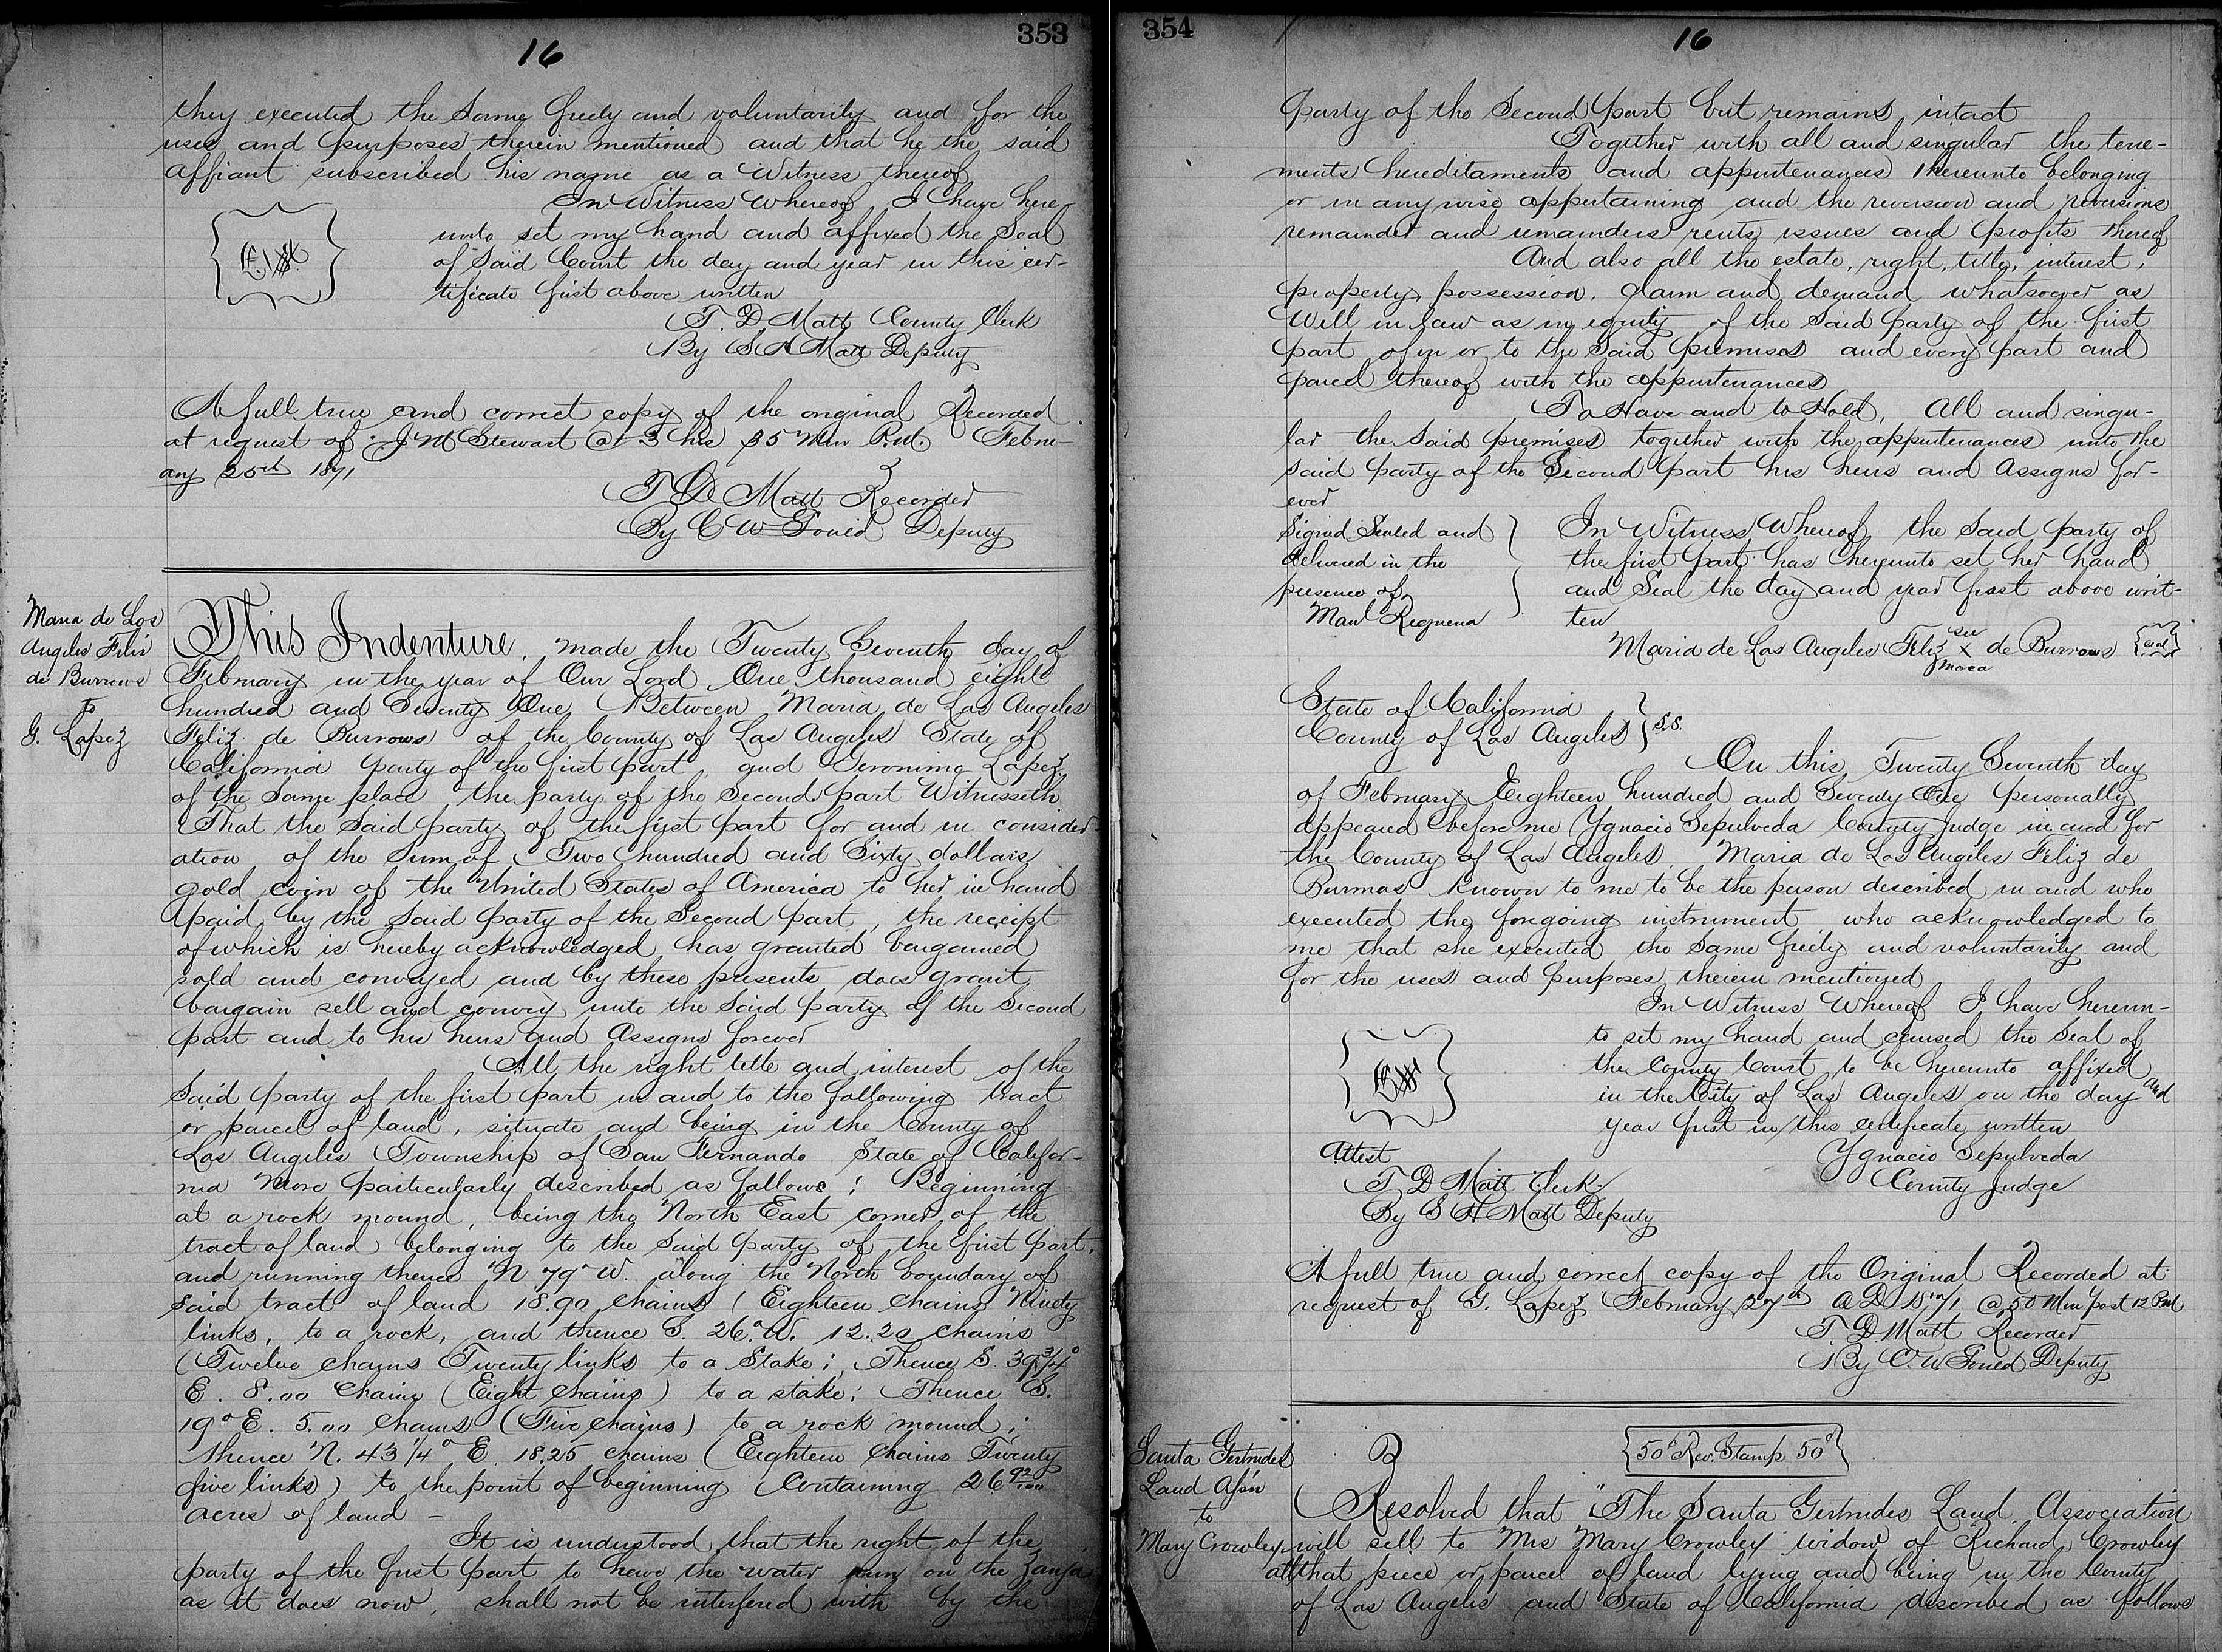 353
16
they executed the same freely and voluntarily and for the
uses and purposes therein mentioned and that he the said
affiant subscribed his name as a Witness thereof
In Witness Whereof I have here
unto set my hand and affixed the Seal
of Said Court the day and year in this cer-
tificate first above written
T. D. Mott County Clerk
By S H Mott Deputy
A full true and correct copy of the original Recorded
at request of J M Stewart @ 3 hrs 35 Min P.M. Febru-
ary 25th 1871
T D Mott Recorder
By C W Gould Deputy
Maria de Los
Angeles Feliz
de Burrows
to
G. Lopez
This Indenture, made the Twenty Seventh day of
February in the year of Our Lord One thousand eight
hundred and Seventy One Between Maria de Los Angeles
Feliz de Burrows of the County of Los Angeles State of
California party of the first part, and Geronimo Lopez
of the Same place the party of the Second part Witnesseth
That the Said party of the first part for and in consider-
ation of the Sum of Two hundred and Sixty dollars
gold coin of the United States of America to her in hand
paid by the Said party of the Second part, the receipt
of which is hereby acknowledged has granted bargained
sold and conveyed and by these presents does grant
bargain sell and convey unto the Said party of the Second
part and to his heirs and Assigns forever
All the right title and interest of the
Said party of the first part in and to the following tract
or parcel of land, situate and being in the County of
Los Angeles Township of San Fernando State of Califor-
nia More particularly described as follows: Beginning
at a rock mound, being the North East corner of the
tract of land belonging to the Said party of the first part,
and running thence N. 79° W. along the North boundary of
said tract of land 18.90 chains (Eighteen chains Ninety
links, to a rock, and thence S. 26° W. 12.20 chains
(Twelve chains Twenty links to a Stake; Thence S. 39 3/4°
E. 8.00 Chains (Eight chains) to a stake; Thence S.
19° E. 5.00 Chains (Five chains) to a rock mound;
thence N. 43 1/4° E. 18.25 chains (Eighteen Chains Twenty
five links) to the point of beginning Containing 26 92/100
acres of land -
It is understood that the right of the
party of the first part to have the water run on the Zanja
as it does now, shall not be interfered with by the
354
16
party of the Second part but remains intact
Together with all and singular the tene-
ments hereditaments and appurtenances thereunto belonging
or in any wise appertaining and the reversion and reversions
remainder and remainders rents issues and profits thereof
And also all the estate, right, title, interest,
property, possession, claim and demand whatsoever as
Well in Law as in equity of the Said party of the first
part of in or to the Said premises and every part and
parcel thereof with the appurtenances
To Have and to Hold, All and singu-
lar the Said premises together with the appurtenances unto the
said party of the Second part his heirs and Assigns for-
ever
Signed Sealed and
delivered in the
presence of
Manl Requena
In Witness Whereof the Said party of
the first part has hereunto set her hand
and Seal the day and year first above writ-
ten
su
Maria de Los Angeles Feliz X de Burrows {seal}
marca
State of California
County of Los Angeles } S.S.
On this Twenty Seventh day
of February Eighteen hundred and Seventy One personally
appeared before me Ygnacio Sepulveda County Judge in and for
the County of Los Angeles, Maria de Los Angeles Feliz de
Burrows known to me to be the person described in and who
executed the foregoing instrument who acknowledged to
me that she executed the Same freely and voluntarily and
for the uses and purposes therein mentioned
In Witness Whereof I have hereun-
to set my hand and caused the Seal of
the County Court to be hereunto affixed
in the City of Los Angeles on the day and
year first in this certificate written
Ygnacio Sepulveda
County Judge
Attest
T D Mott Clerk
By S H Mott Deputy
A full true and correct copy of the Original Recorded at
request of G. Lopez February 27th A D 1871 @ 50 Min past 12 P.M.
T. D. Mott Recorder
By C. W Gould Deputy
Santa Gertrudes
Land Ass'n
to
Mary Crowley
{50¢ Rev. Stamp 50¢}
Resolved that "The Santa Gertrudes Land Association
will sell to Mrs Mary Crowley widow of Richard Crowley
all that piece or parcel of land lying and being in the County
of Los Angeles and State of California described as follows